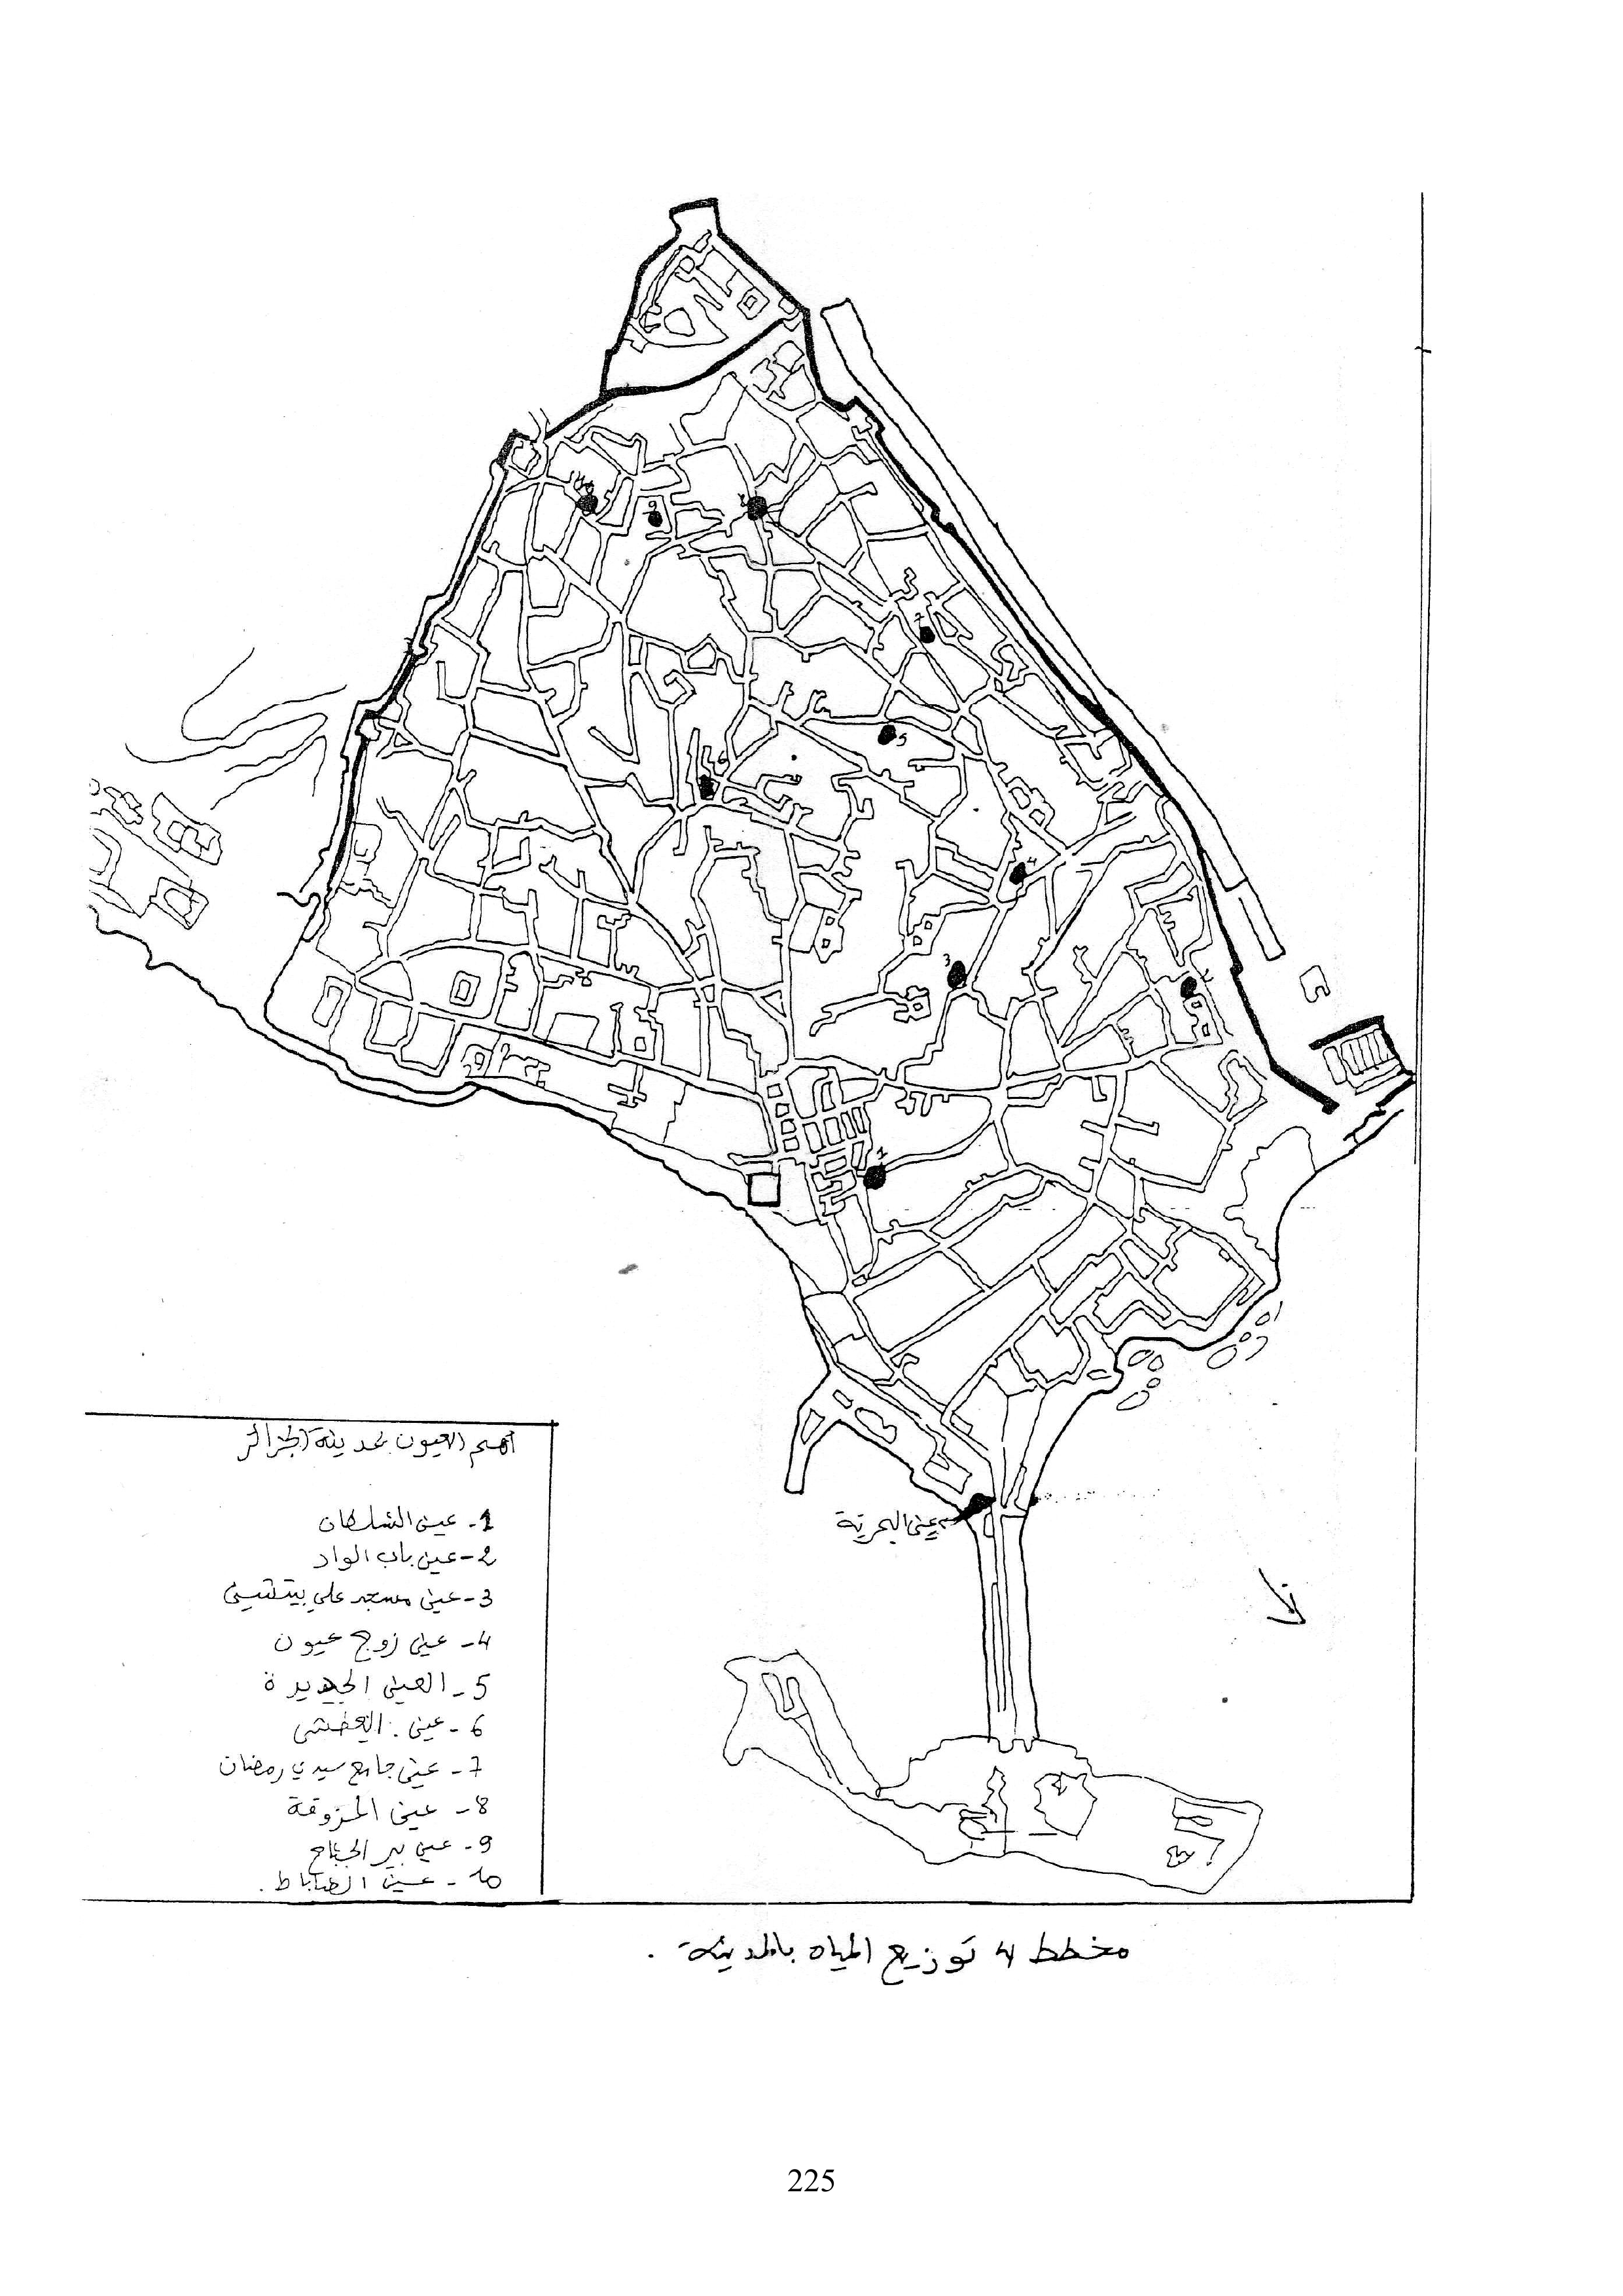 9
7
5
6
4
3
1
عين البحرية
أهم العيون لمدينة الجزائر
1- عين السلطان
2- عين باب الواد
3- عين مسجد علي بيتشين
4- عين زوج عيون
5- العين الجديدة
6- عين
7- عين جامع سيدي رمضان
8- عين المزوقة
9- عين بير الجباح
10- عين الضباط.
مخطط 4 توزيع المياه بالمدينة.
225